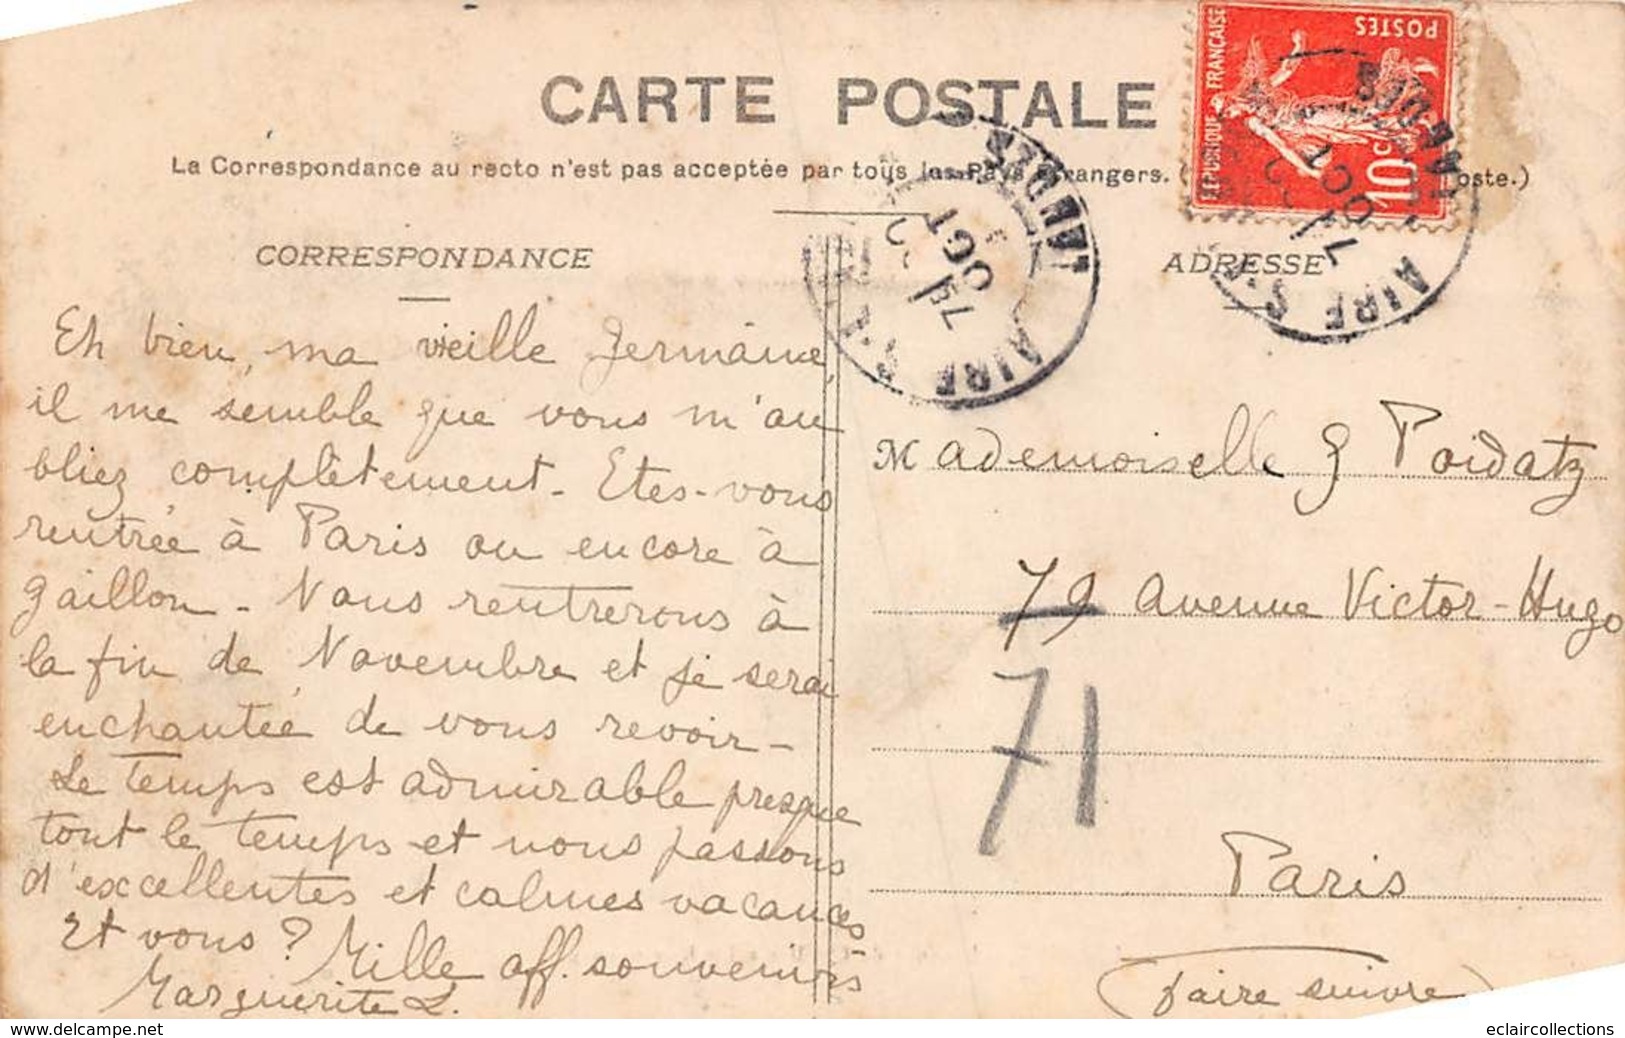 CARTE POSTALE
La Correspondance au recto n'est pas acceptée par tous les Pays Etrangers. ( oste.)
RÉPUBLIQUE FRANÇAISE
POSTES
10c
AIRE S.
OCT
AIRE S.
OCT
CORRESPONDANCE
Eh bien, ma vieille Germaine,
il me semble que vous m'ou
bliez complètement - Etes-vous
rentrée à Paris ou encore à
Gaillon - Nous rentrerons à
la fin de Novembre et je serai
enchantée de vous revoir -
Le temps est admirable presque
tout le temps et nous passons
d'excellentes et calmes vacances
Et vous ? Mille aff. souvenirs
Marguerite L.
ADRESSE
Mademoiselle G Poidatz
79 avenue Victor-Hugo
71
Paris
(faire suivre)
www.delcampe.net
eclaircollections